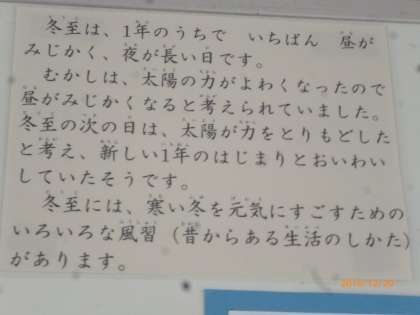 冬至は、1年のうちで　いちばん　昼が
みじかく、夜が長い日です。
むかしは、太陽の力がよわくなったので
昼がみじかくなると考えられていました。
冬至の次の日は、太陽が力をとりもどした
と考え、新しい1年のはじまりとおいわい
していたそうです。
冬至には、寒い冬を元気にすごすための
いろいろな風習（昔からある生活のしかた）
があります。